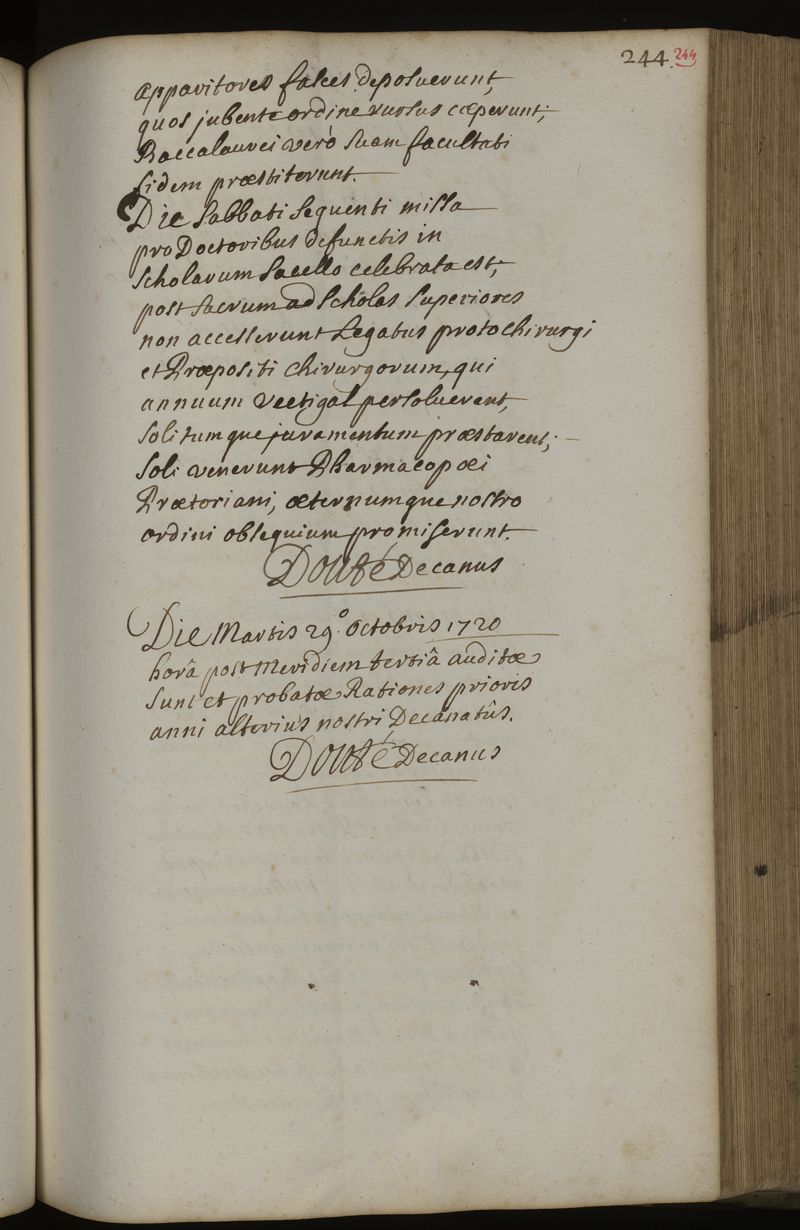 244. 244
apparitores fasces deposuerunt,
quos jubente ordine rursus cæperunt;
Baccalaurei verò suam facultati
fidem præstiterunt.
Die Sabbati sequenti missa
pro Doctoribus defunctis in
Scholarum Sacello celebrata est;
post sacrum ad Scholas Superiores
non accesserunt Legatus protochirurgi
et Præpositi chirurgorum, qui
annuum vectigal persoluerent,
solitumque juramentum præstarent;
soli venerunt Pharmacopœi
Prætoriani, æternumque nostro
ordini obsequium promiserunt.
Douté Decanus
Die Martis 29.° octobris 1720
horâ post Meridiem tertiâ auditæ
sunt et probatæ Rationes prioris
anni alterius nostri Decanatûs.
Douté Decanus